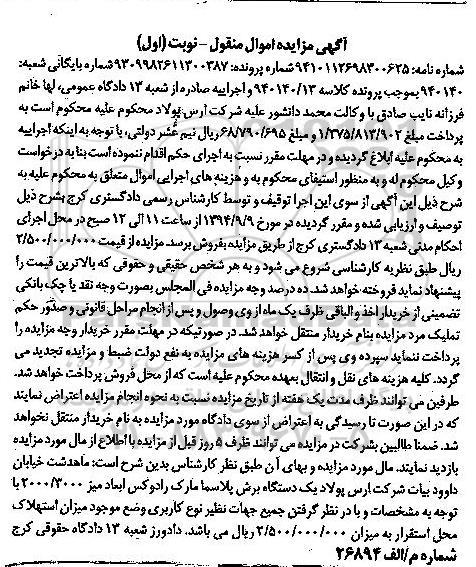 آگهی مزایده اموال منقول - نوبت (اول)
شماره نامه: ۹۴۱۰۱۱۲۶۹۸۳۰۰۶۲۵ شماره پرونده: ۹۳۰۹۹۸۲۶۱۱۳۰۰۳۸۷ شماره بایگانی شعبه:
۹۴۰۱۴۰ بموجب پرونده کلاسه ۹۴۰۱۴۰/۱۳ و اجراییه صادره از شعبه ۱۳ دادگاه عمومی، لها خانم
فرزانه نایب صادق با وکالت محمد دانشور علیه شرکت ارس پولاد محکوم علیه محکوم است به
پرداخت مبلغ ۱/۳۷۵/۸۱۳/۹۰۲ و مبلغ ۶۸/۷۹۰/۶۹۵ ریال نیم عُشر دولتی، با توجه به اینکه اجراییه
به محکوم علیه ابلاغ گردیده و در مهلت مقرر نسبت به اجرای حکم اقدام ننموده است بنا به درخواست
وکیل محکوم له و به منظور استیفای محکوم به و هزینه های اجرایی اموال متعلق به محکوم علیه به
شرح ذیل این آگهی از سوی این اجرا توقیف و توسط کارشناس رسمی دادگستری کرج بشرح ذیل
توصیف و ارزیابی شده و مقرر گردیده در مورخ ۱۳۹۴/۹/۹ از ساعت ۱۱ الی ۱۲ صبح در محل اجرای
احکام مدنی شعبه ۱۳ دادگستری کرج از طریق مزایده بفروش برسد. مزایده از قیمت ۲/۵۰۰/۰۰۰/۰۰۰
ریال طبق نظریه کارشناسی شروع می شود و به هر شخص حقیقی و حقوقی که بالاترین قیمت را
پیشنهاد نماید فروخته خواهد شد. ده درصد وجه مزایده فی المجلس بصورت وجه نقد یا چک بانکی
تضمینی از خریدار اخذ و الباقی ظرف یک ماه از وی وصول و پس از انجام مراحل قانونی و صدور حکم
تملیک مرد مزایده بنام خریدار منتقل خواهد شد. در صورتیکه در مهلت مقرر خریدار وجه مزایده را
پرداخت ننماید سپرده وی پس از کسر هزینه های مزایده به نفع دولت ضبط و مزایده تجدید می
گردد. کلیه هزینه های نقل و انتقال بعهده محکوم علیه است که از محل فروش پرداخت خواهد شد.
طرفین می توانند ظرف مدت یک هفته از تاریخ مزایده نسبت به نحوه انجام مزایده اعتراض نمایند
که در این صورت تا رسیدگی به اعتراض از سوی دادگاه مورد مزایده به نام خریدار منتقل نخواهد
شد. ضمنا طالبین بشرکت در مزایده می توانند ظرف ۵ روز قبل از مزایده با اطلاع از مال مورد مزایده
بازدید نمایند. مال مورد مزایده و بهای آن طبق نظر کارشناس بدین شرح است: ماهدشت خیابان
داوود بیات شرکت ارس پولاد یک دستگاه برش پلاسما مارک رادوکس ابعاد میز ۲۰۰۰/۳۰۰۰ با
توجه به مشخصات و با در نظر گرفتن جمیع جهات نظیر نوع کاربری وضع موجود میزان استهلاک
محل استقرار به میزان ۲/۵۰۰/۰۰۰/۰۰۰ ریال می باشد. دادورز شعبه ۱۳ دادگاه حقوقی کرج
شماره م/الف ۲۶۸۹۴